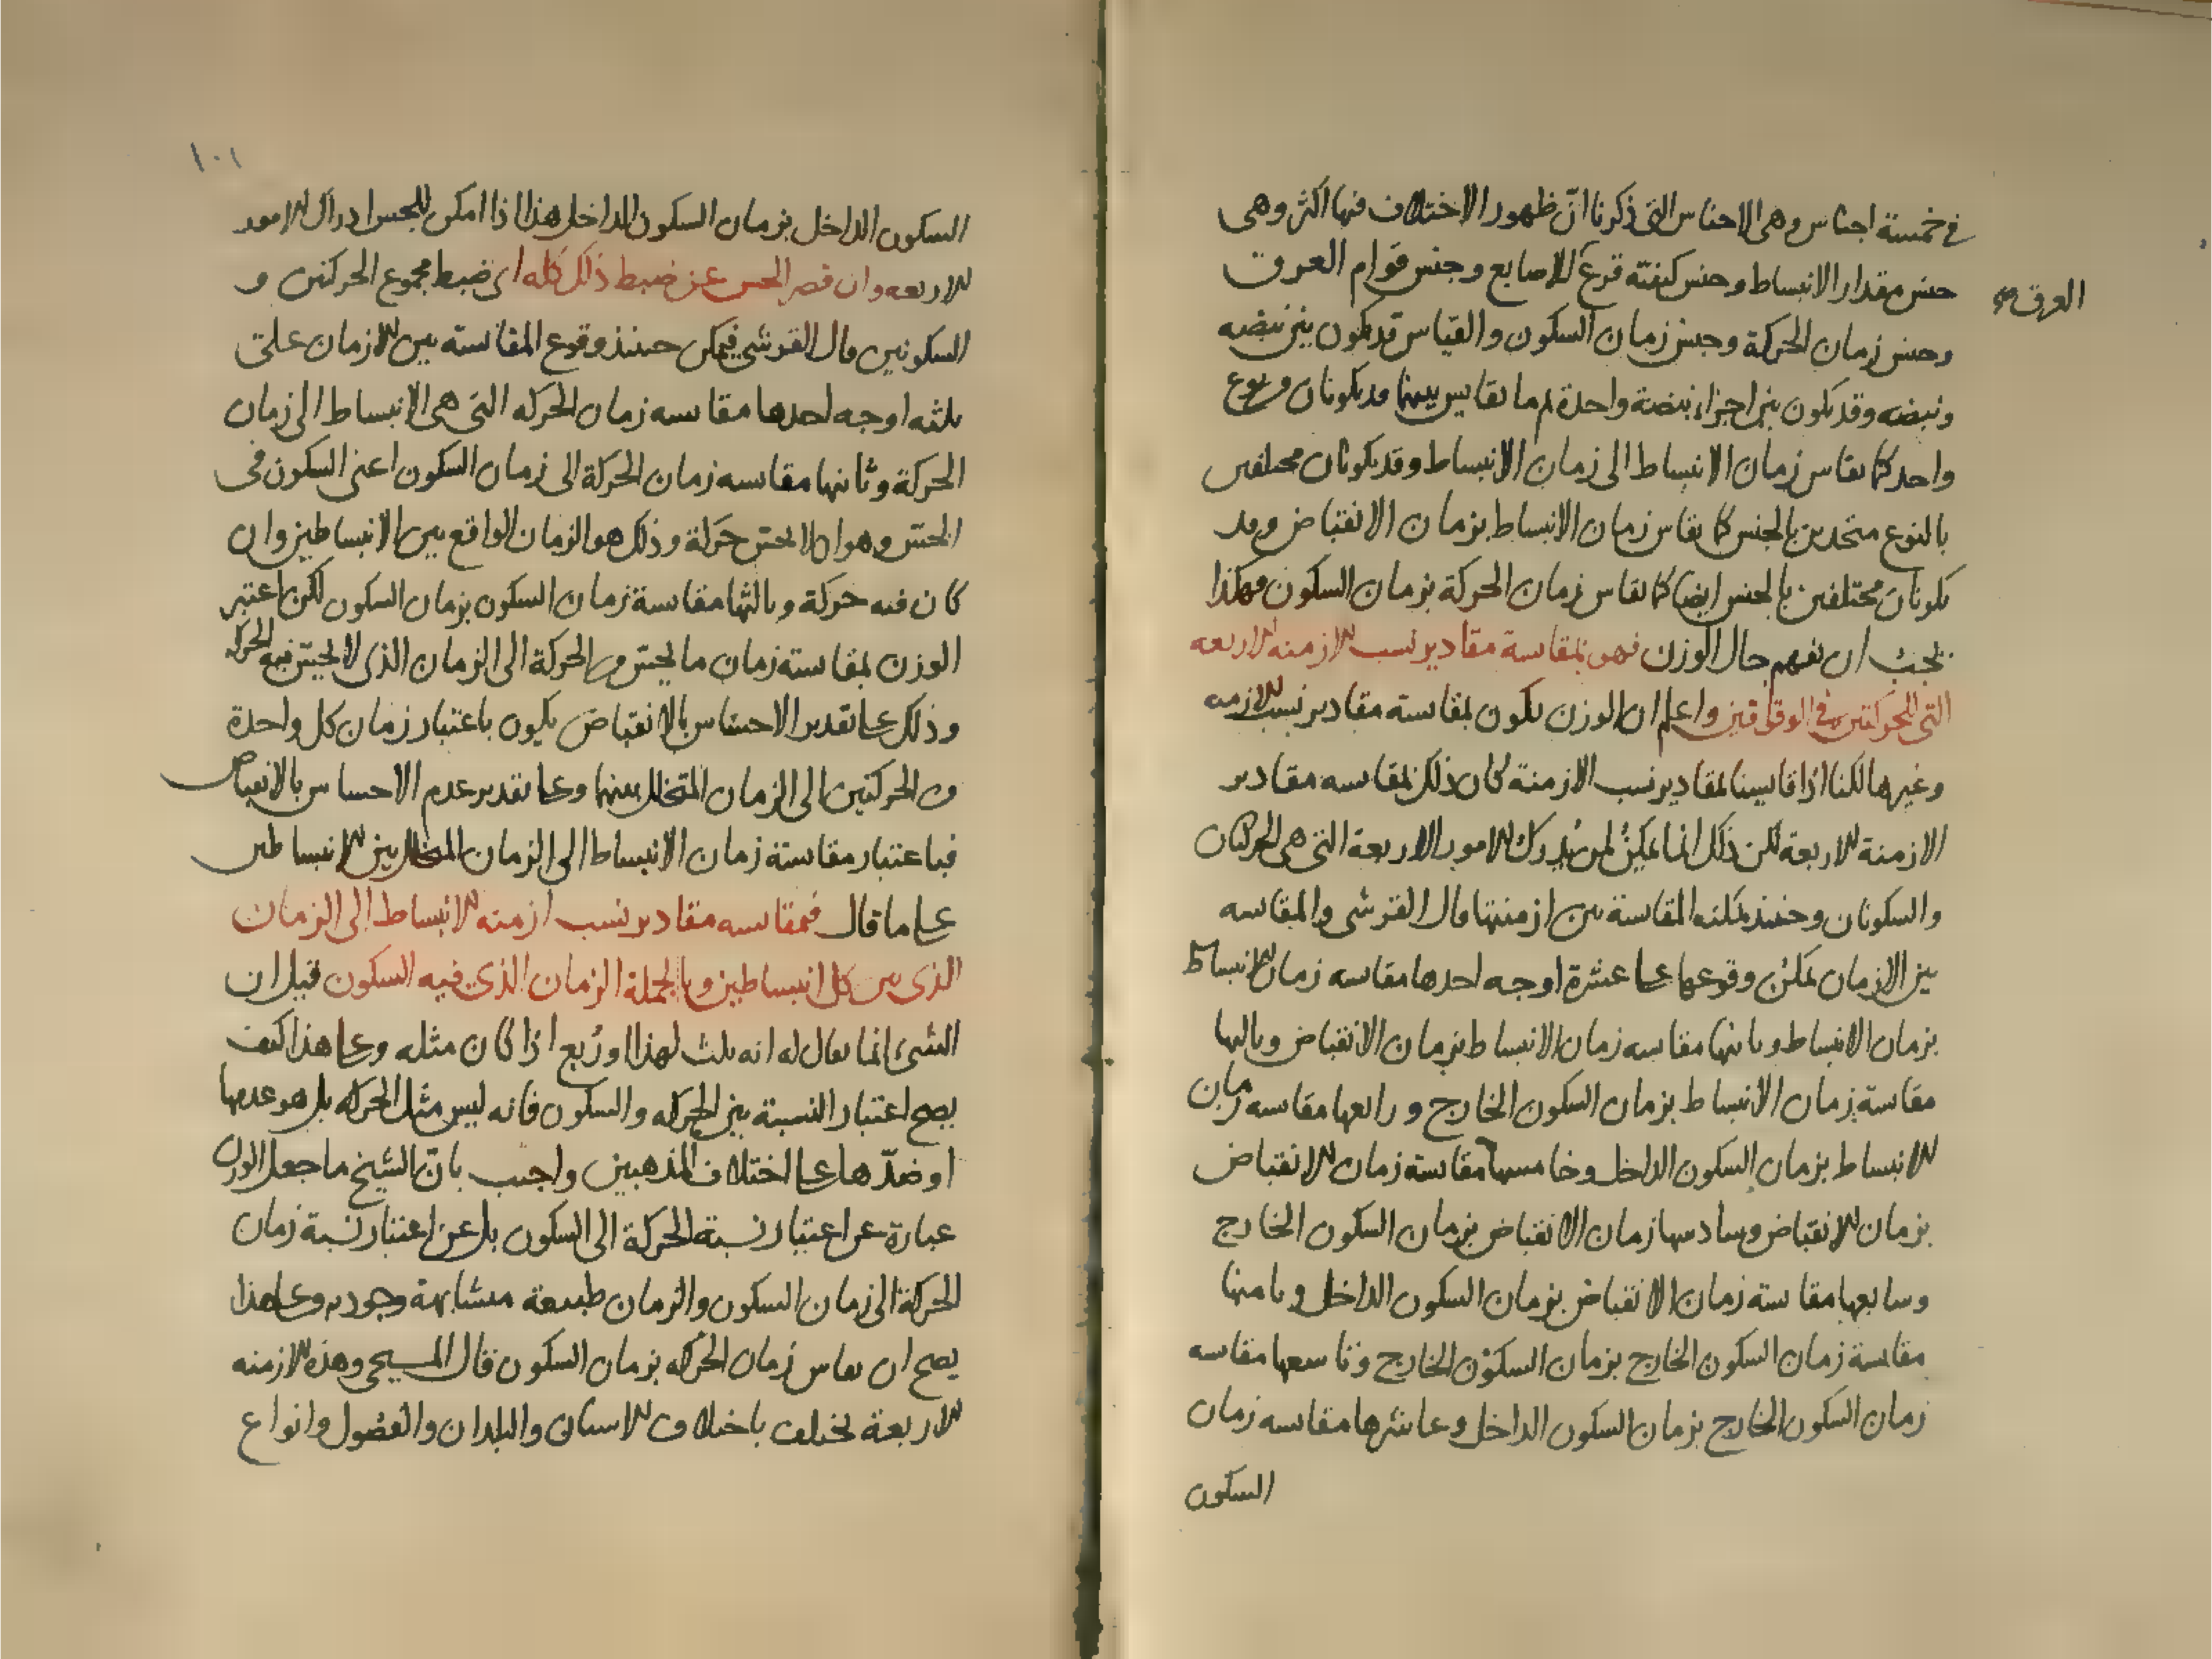 في خمسة اجناس وهى الاجناس التى ذكرنا انّ ظهور الاختلاف فيها اكثر وهى
جنس مقدار الانبساط وجنس كيفيّة قرع الاصابع وجنس قوام العرق
العرق
وجنس زمان الحركة وجنس زمان السكون والقياس قد يكون بين نبضه
ونبضه وقد يكون بين اجزاء نبضة واحدة ثم ما يقايس بينهما قد يكونان من نوع
واحد كما يقاس زمان الانبساط الى زمان الانبساط وقد يكونان مختلفين
بالنوع متحدين بالجنس كما يقاس زمان الانبساط بزمان الانقباض وقد
يكونان مختلفين بالجنس ايضا كما يقاس زمان الحركة بزمان السكون فهكذا
يجب ان يفهم حال الوزن فهو بمقايسة مقادير نسب الازمنه الاربعه
التى للحركتين والوقوفين واعلم ان الوزن يكون بمقايسة مقادير نسب الازمنه
وغيرها لكنا اذا قايسنا بمقادير نسب الازمنة كان ذلك بمقايسه مقادير
الازمنة الاربعة لكن ذلك انما يمكن لمن يُدرك الامور الاربعة التى هى الحركتان
والسكونان وحينئذ يمكنه المقايسة بين ازمنتها قال القرشى والمقايسه
بين الازمان يمكن وقوعها على عشرة اوجه احدها مقايسه زمان الانبساط
بزمان الانبساط وثانيها مقايسه زمان الانبساط بزمان الانقباض وثالثها
مقاسة زمان الانبساط بزمان السكون الخارج ورابعها مقايسه زمان
الانبساط بزمان السكون الداخل وخامسها مقايسة زمان الانقباض
بزمان الانقباض وسادسها زمان الانقباض بزمان السكون الخارج
وسابعها مقايسة زمان الانقباض بزمان السكون الداخل وثامنها
مقايسة زمان السكون الخارج بزمان السكون الخارج وتاسعها مقايسه
زمان السكون الخارج بزمان السكون الداخل وعاشرها مقايسه زمان
السكون
١٠١
السكون الداخل بزمان السكون الداخل هذا اذا امكن للحس ادراك الامور
الاربعه وان قصر الحس عن ضبط ذلك كله اى ضبط مجموع الحركتين و
السكونين قال القرشى فيمكن حينئذ وقوع المقايسة بين الازمان على
ثلثه اوجه احدها مقايسه زمان الحركه التى هى الانبساط الى زمان
الحركة وثانيها مقايسه زمان الحركة الى زمان السكون اعنى السكون فى
الحسّ وهو ان لا يحسّ حركة وذلك هو الزمان الواقع بين الانبساطين وان
كان فيه حركة وثالثها مقايسة زمان السكون بزمان السكون لكن اعتبر
الوزن بمقايسة زمان ما يحسّ من الحركة الى الزمان الذى لا يحسّ فيه الحركة
وذلك على تقدير الاحساس بالانقباض يكون باعتبار زمان كل واحدة
من الحركتين الى الزمان المتخلل بينهما وعلى تقدير عدم الاحساس بالانقباض
فباعتبار مقايسة زمان الانبساط الى الزمان المتخلل بين الانبساطين
على ما قال فمقايسه مقادير نسب ازمنه الانبساط الى الزمان
الذى بين كل انبساطين وبالجملة الزمان الذى فيه السكون قيل ان
الشىء انما يقال له انه ثلث لهذا او رُبع اذا كان مثله وعلى هذا كيف
يصح اعتبار النسبة بين الحركه والسكون فانه ليس مثل الحركه بل هو عدمها
او ضدّها على اختلاف المذهبين واجيب بانّ الشيخ ما جعل الوزن
عبارة عن اعتبار نسبة الحركة الى السكون بل عن اعتبار نسبة زمان
الحركة الى زمان السكون والزمان طبيعة متشابهة وعلى هذا
يصح ان يقاس زمان الحركه بزمان السكون قال المسيحى وهذه الازمنه
الاربعة يختلف باختلاف الاسنان والبلدان والفصول وانواع